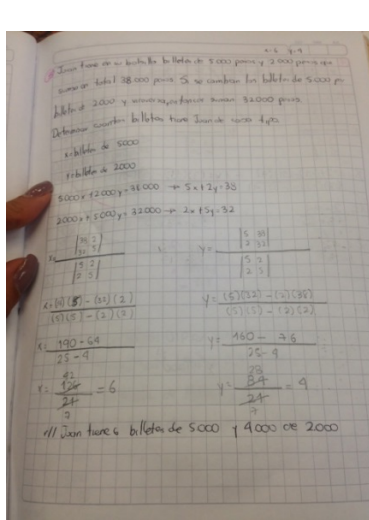 x=6 y=4
Juan tiene en su bolsillo billetes de 5000 pesos y 2000 pesos que
suman en total 38000 pesos. Si se cambian los billetes de 5000 por
billetes de 2000 y suman 32000 pesos
Determinar cuantos billetes tiene Juan de cada tipo
x=billetes de 5000
y=billetes de 2000
5000x+2000y=38000 → 5x+2y=38
2000x+5000y=32000 → 2x+5y=32
x= |38 2| |32 5| / |5 2| |2 5| y= |5 38| |2 32| / |5 2| |2 5|
x= (38)(5)-(32)(2) / (5)(5)-(2)(2) y= (5)(32)-(2)(38) / (5)(5)-(2)(2)
x= 190-64 / 25-4 y= 160-76 / 25-4
42 28
x= 126 / 21 = 6 y= 84 / 21 = 4
7 7
r// Juan tiene 6 billetes de 5000 y 4000 de 2000